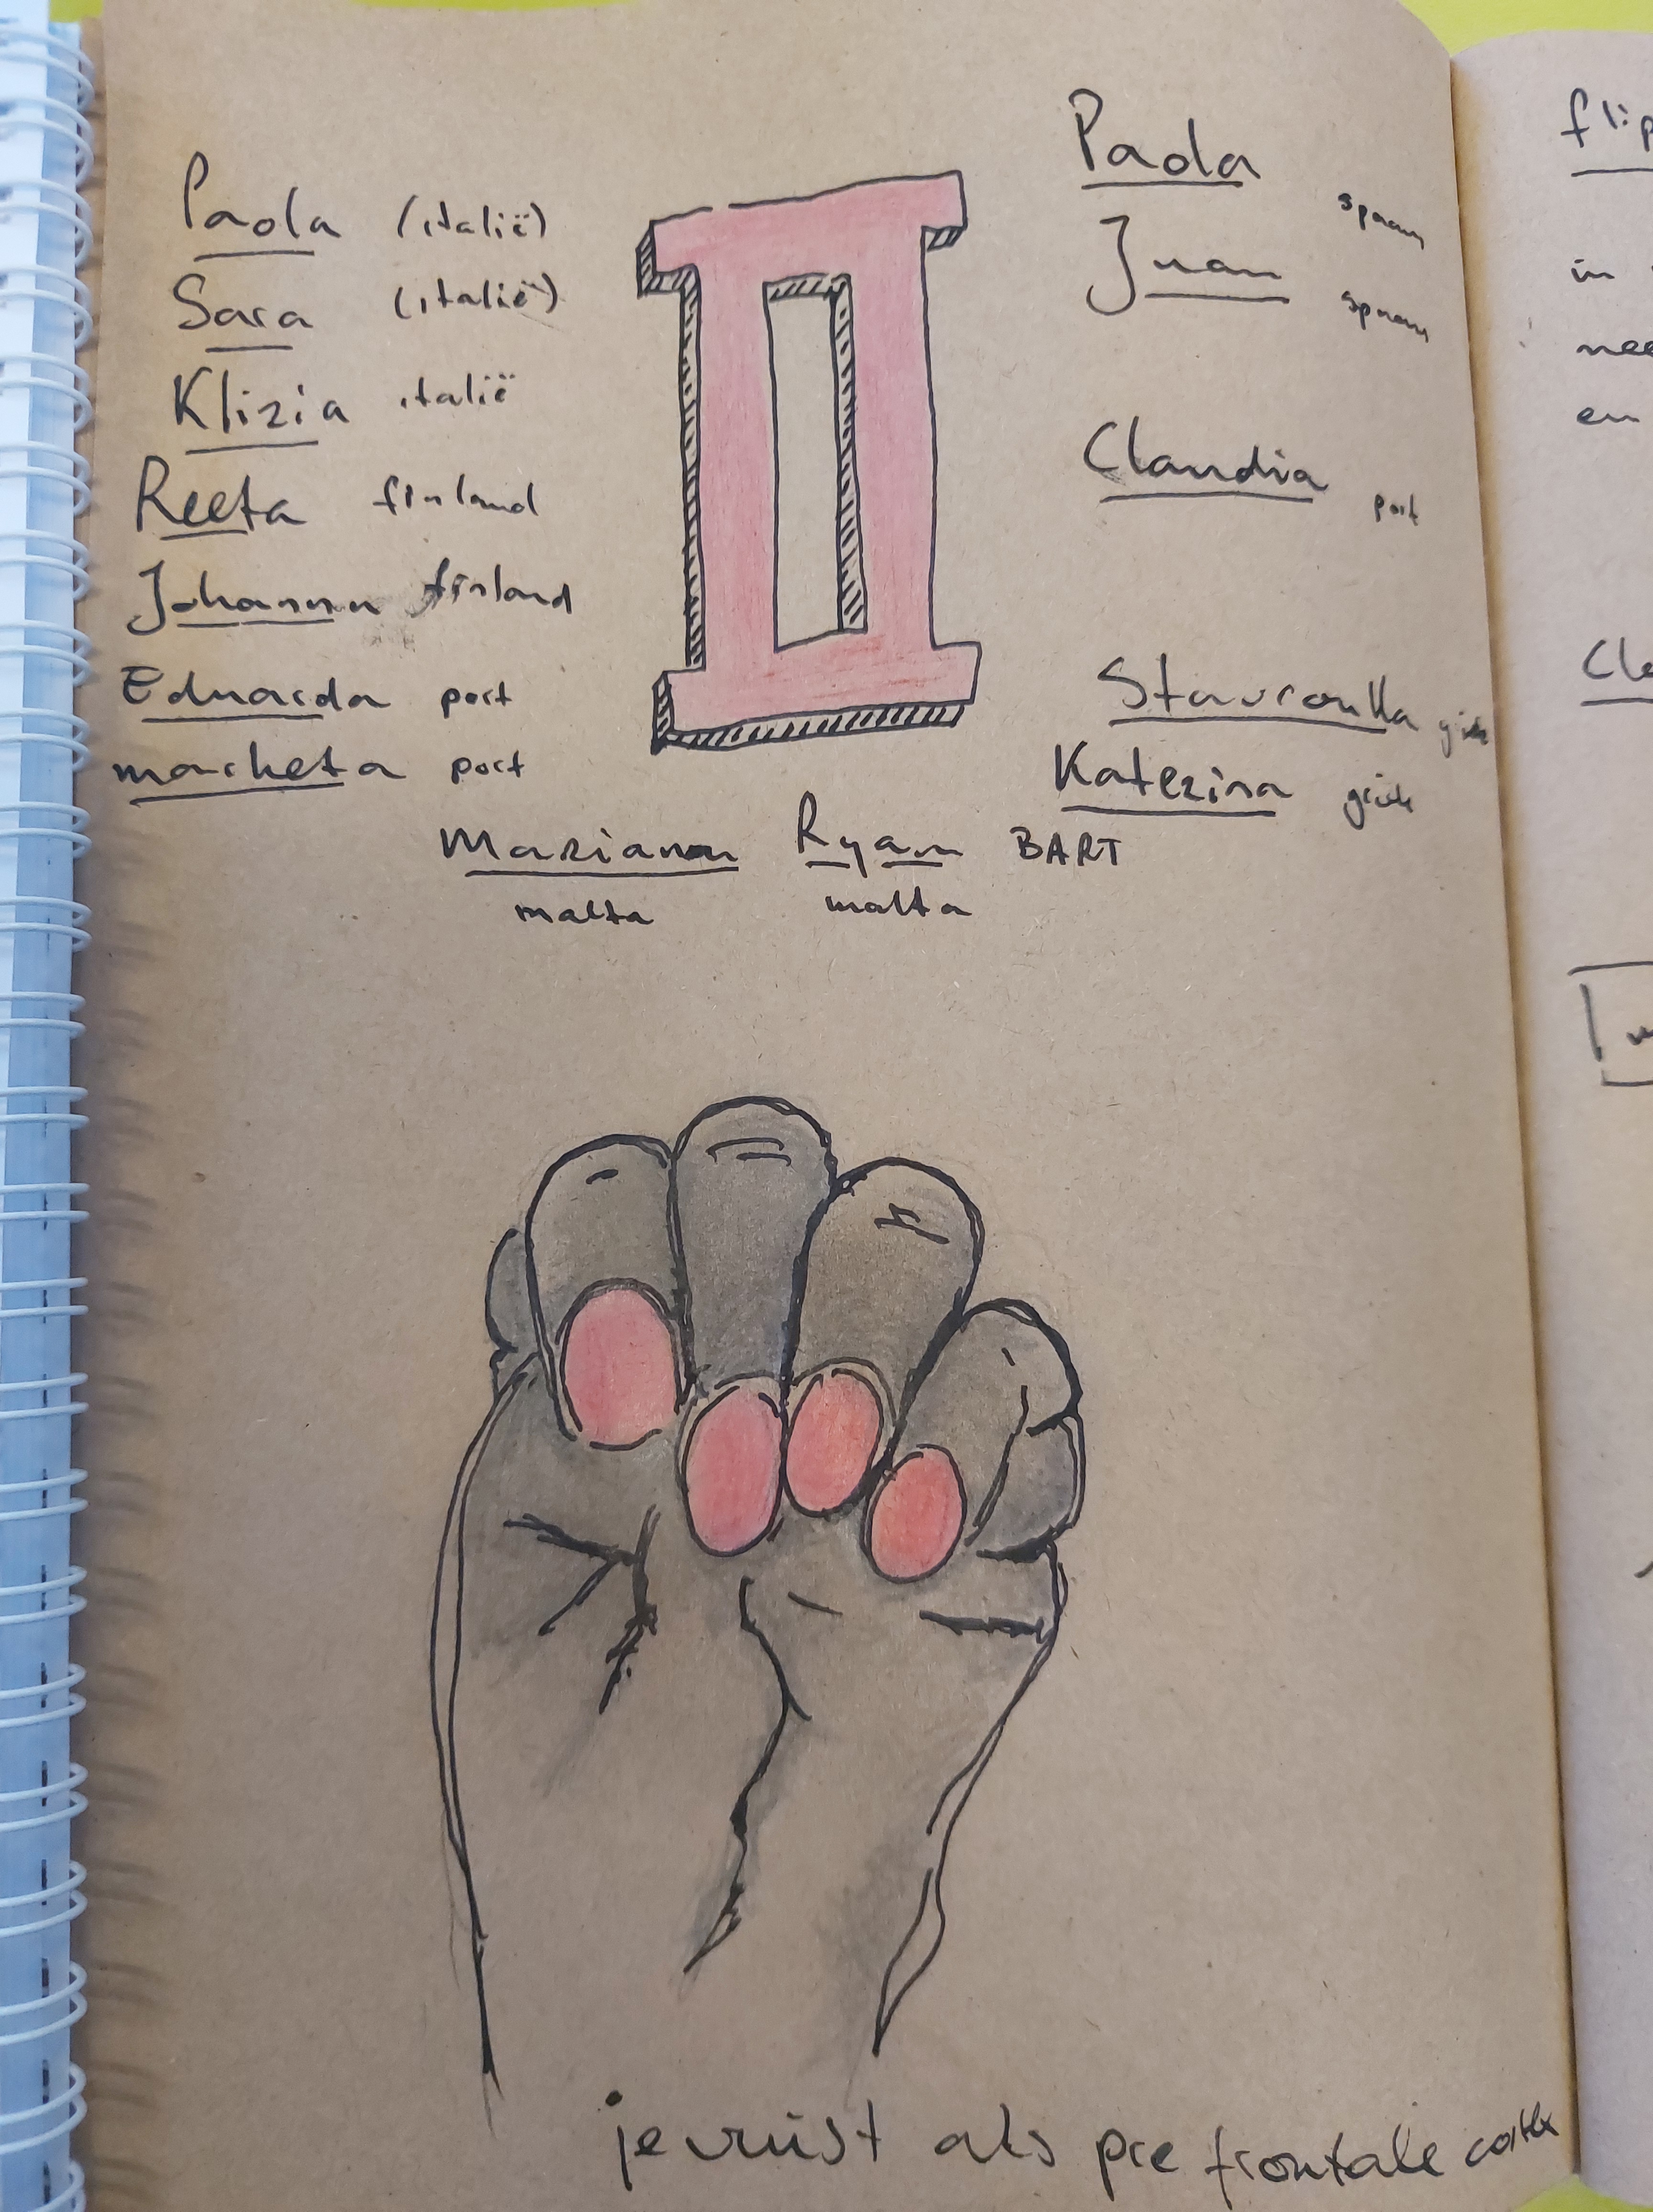 Paola (italië)
Sara (italië)
Klizia italië
Reeta finland
Johanna finland
Eduarda port
marketa port
II
Paola spaan
Juan spaan
Claudia port
Stavroulla
Katerina
Mariana Ryan BART
malta malta
je vuist als pre frontale cortex
in
en